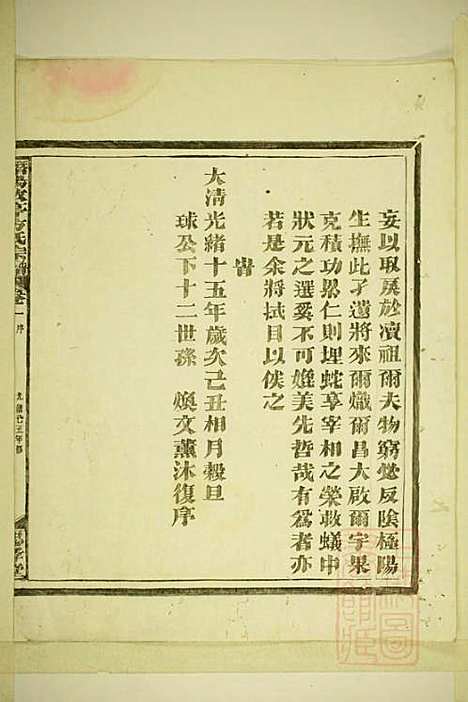 妄以取戾於瀆祖爾夫物窮必反陰極陽
生撫此孑遺將來爾熾爾昌大啟爾宇果
克積功累仁則埋蛇享宰相之榮救蟻中
狀元之選奚不可媲美先哲哉有為者亦
若是余將拭目以俟之
旹
大清光緒十五年歲次己丑相月穀旦
球公下十二世孫 煥文薰沐復序
方氏宗譜 卷一 序